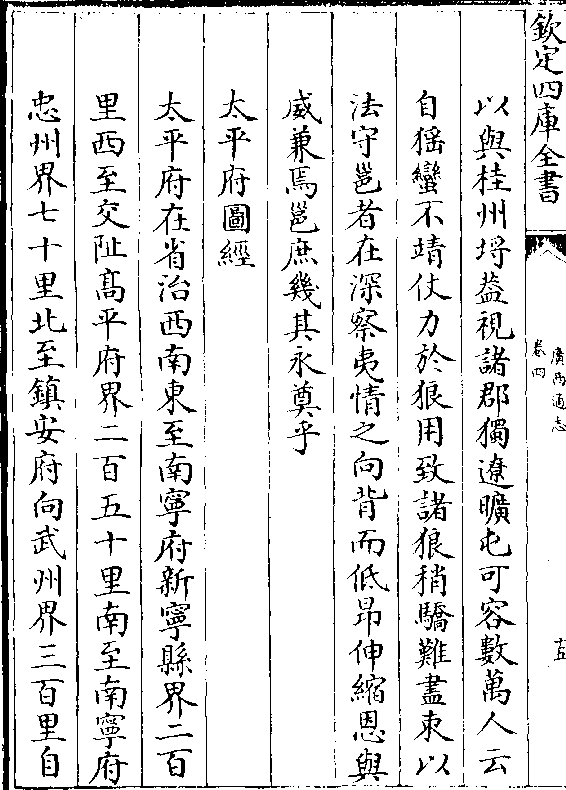 欽定四庫全書
廣西通志
卷四
十五
以與桂州埒葢視諸郡獨遼曠屯可容數萬人云
自猺蠻不靖仗力於狼用致諸狼稍驕難盡束以
法守邕者在深察夷情之向背而低昂伸縮恩與
威兼焉邕庶幾其永奠乎
太平府圖經
太平府在省治西南東至南寧府新寧縣界二百
里西至交阯髙平府界二百五十里南至南寧府
忠州界七十里北至鎮安府向武州界三百里自